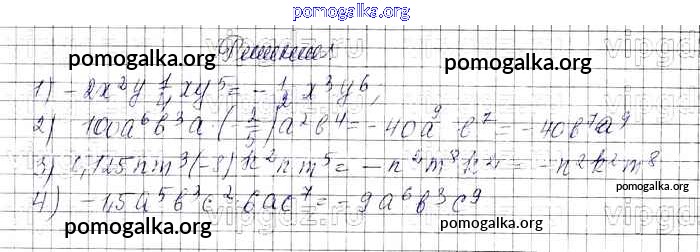 pomogalka.org
Решение:
pomogalka.org
pomogalka.org
1) -2x²y 1/4 xy⁵ = - 1/2 x³y⁶,
2) 100a⁶b³a (-2/5) a²b⁴ = -40a⁹ b⁷ = -40b⁷a⁹
3) 0,125nm³(-8)k²nm⁵ = -n²m⁸k² = -n²k²m⁸
pomogalka.org
4) -1,5a⁵b³c² 6ac⁷ = -9a⁶b³c⁹
pomogalka.org
pomogalka.org
pomogalka.org